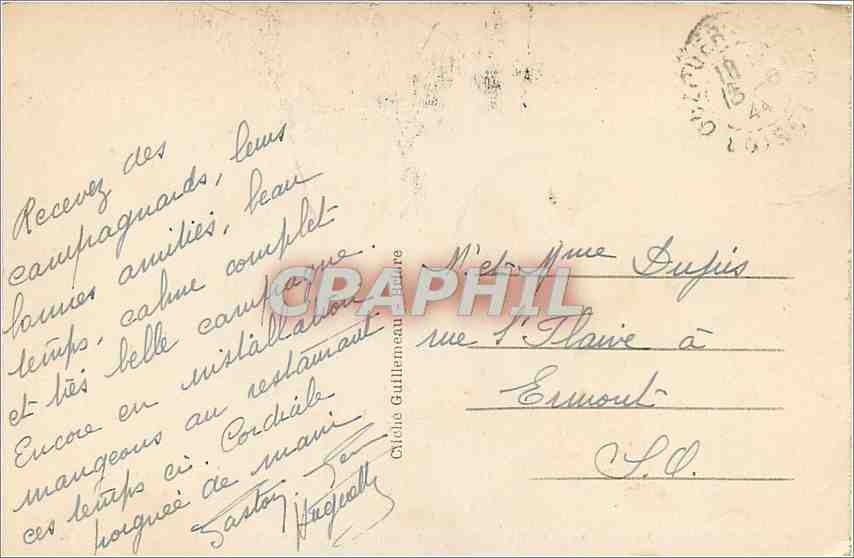 Recevez des
campagnards, leurs
bonnes amitiés, beau
temps, calme complet
et très belle campagne.
Encore en installation
mangeons au restaurant
ces temps ci. Cordiale
poignée de main
Gaston
Huguette
Cliché Guillemeau - Bellore
CPAPHIL
Mr et Mme Dupuis
rue St Flaive à
Ermont
S.O.
44